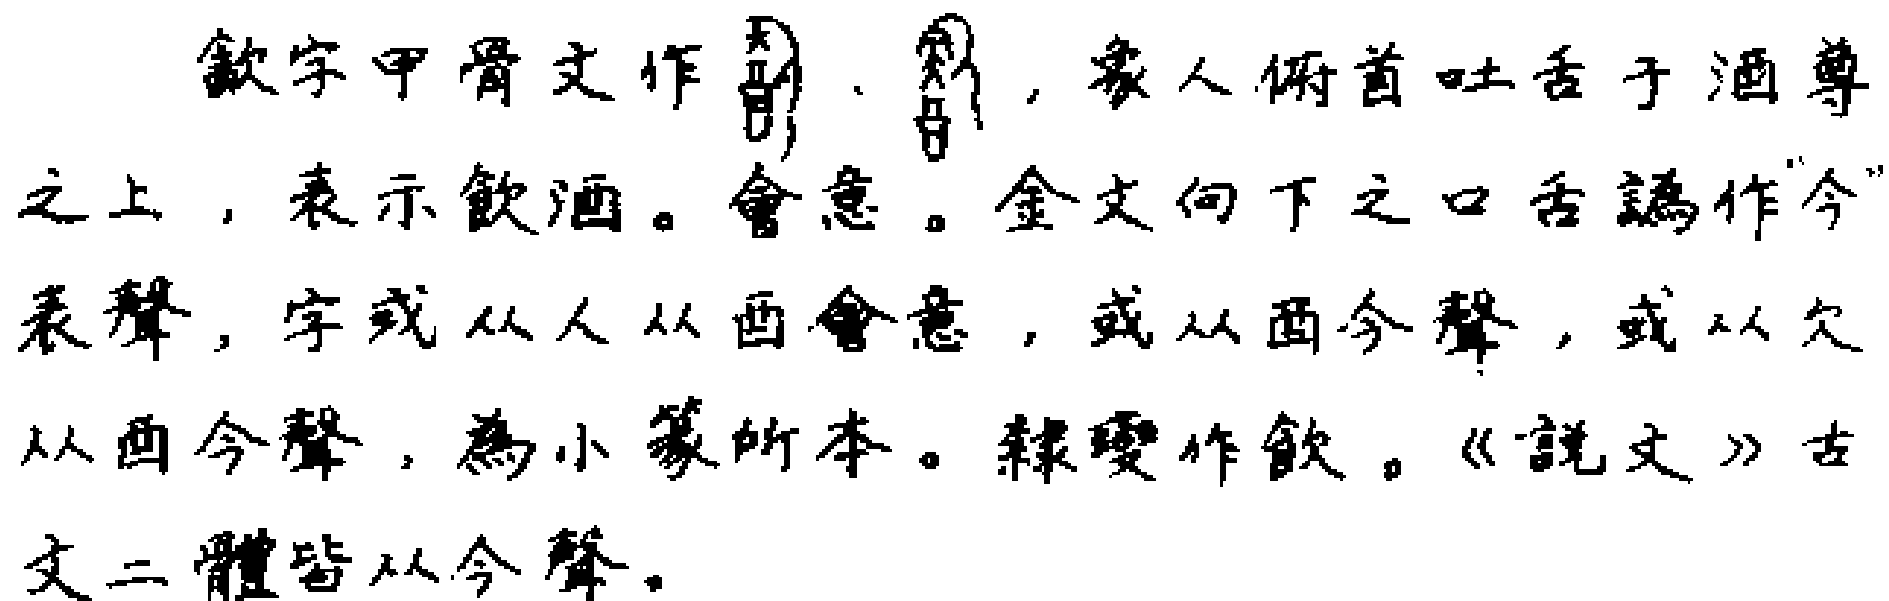 飲字甲骨文作、，象人俯首吐舌于酒尊
之上，表示飲酒。會意。金文向下之口舌譌作“今”
表聲，字或从人从酉會意，或从酉今聲，或从欠
从酉今聲，為小篆所本。隸變作飲。《説文》古
文二體皆从今聲。